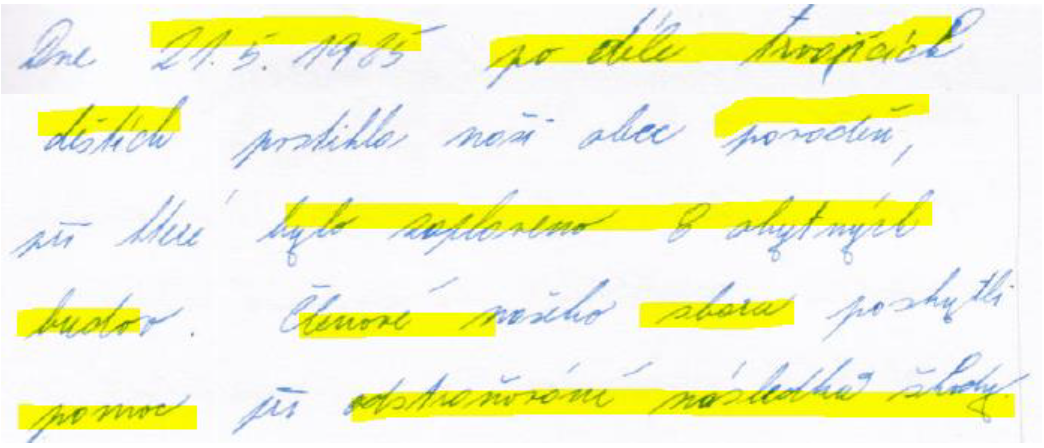 Dne 21. 5. 1985 po déle trvajících
deštích postihla naši obec povodeň,
při které bylo zaplaveno 8 obytných
budov. Členové našeho sboru poskytli
pomoc při odstraňování následků škody.